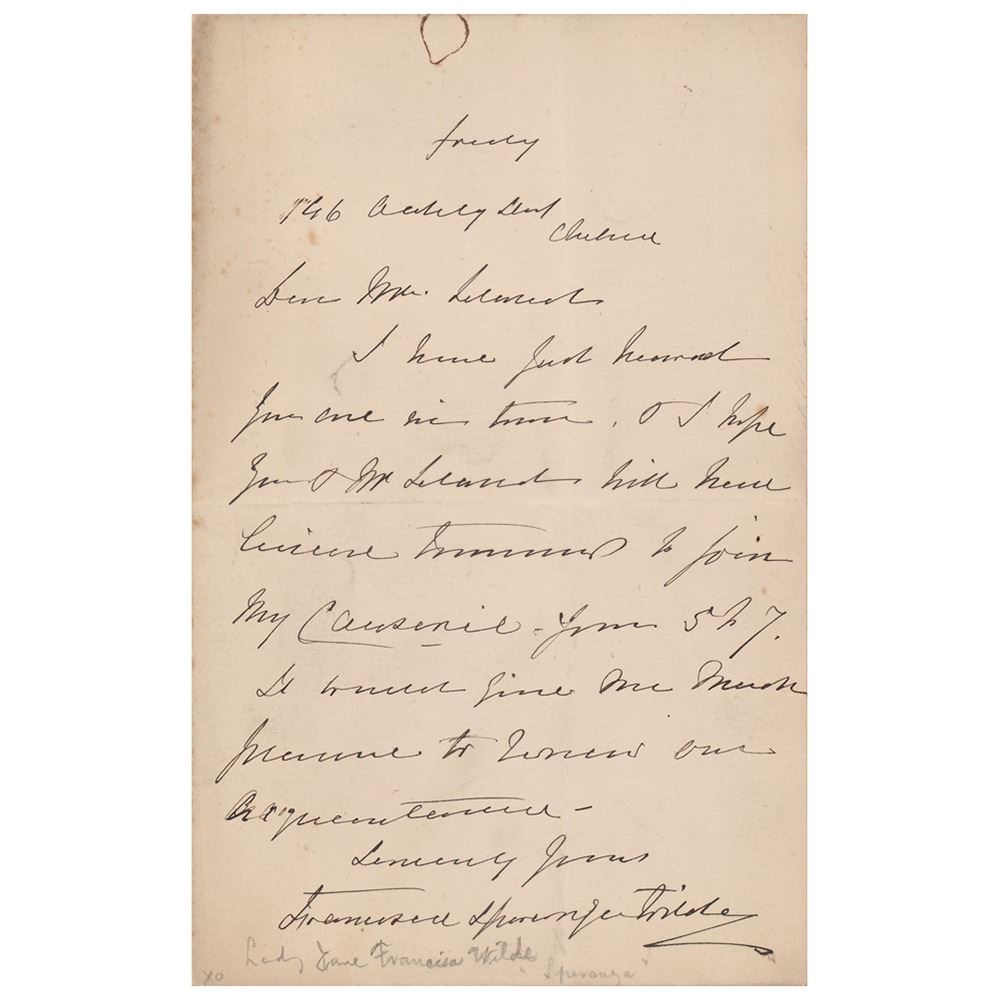 Friday
146 Oakley Street
Chelsea
Dear Mrs. Leland
I have just heard
you are in town. & I hope
you & Mr Leland will have
leisure tomorrow to join
my Causerie - from 5 to 7.
It would give me much
pleasure to renew our
acquaintance -
Sincerely yours
Francesca Speranza Wilde
Lady Jane Francisa Wilde
"Speranza"
XO